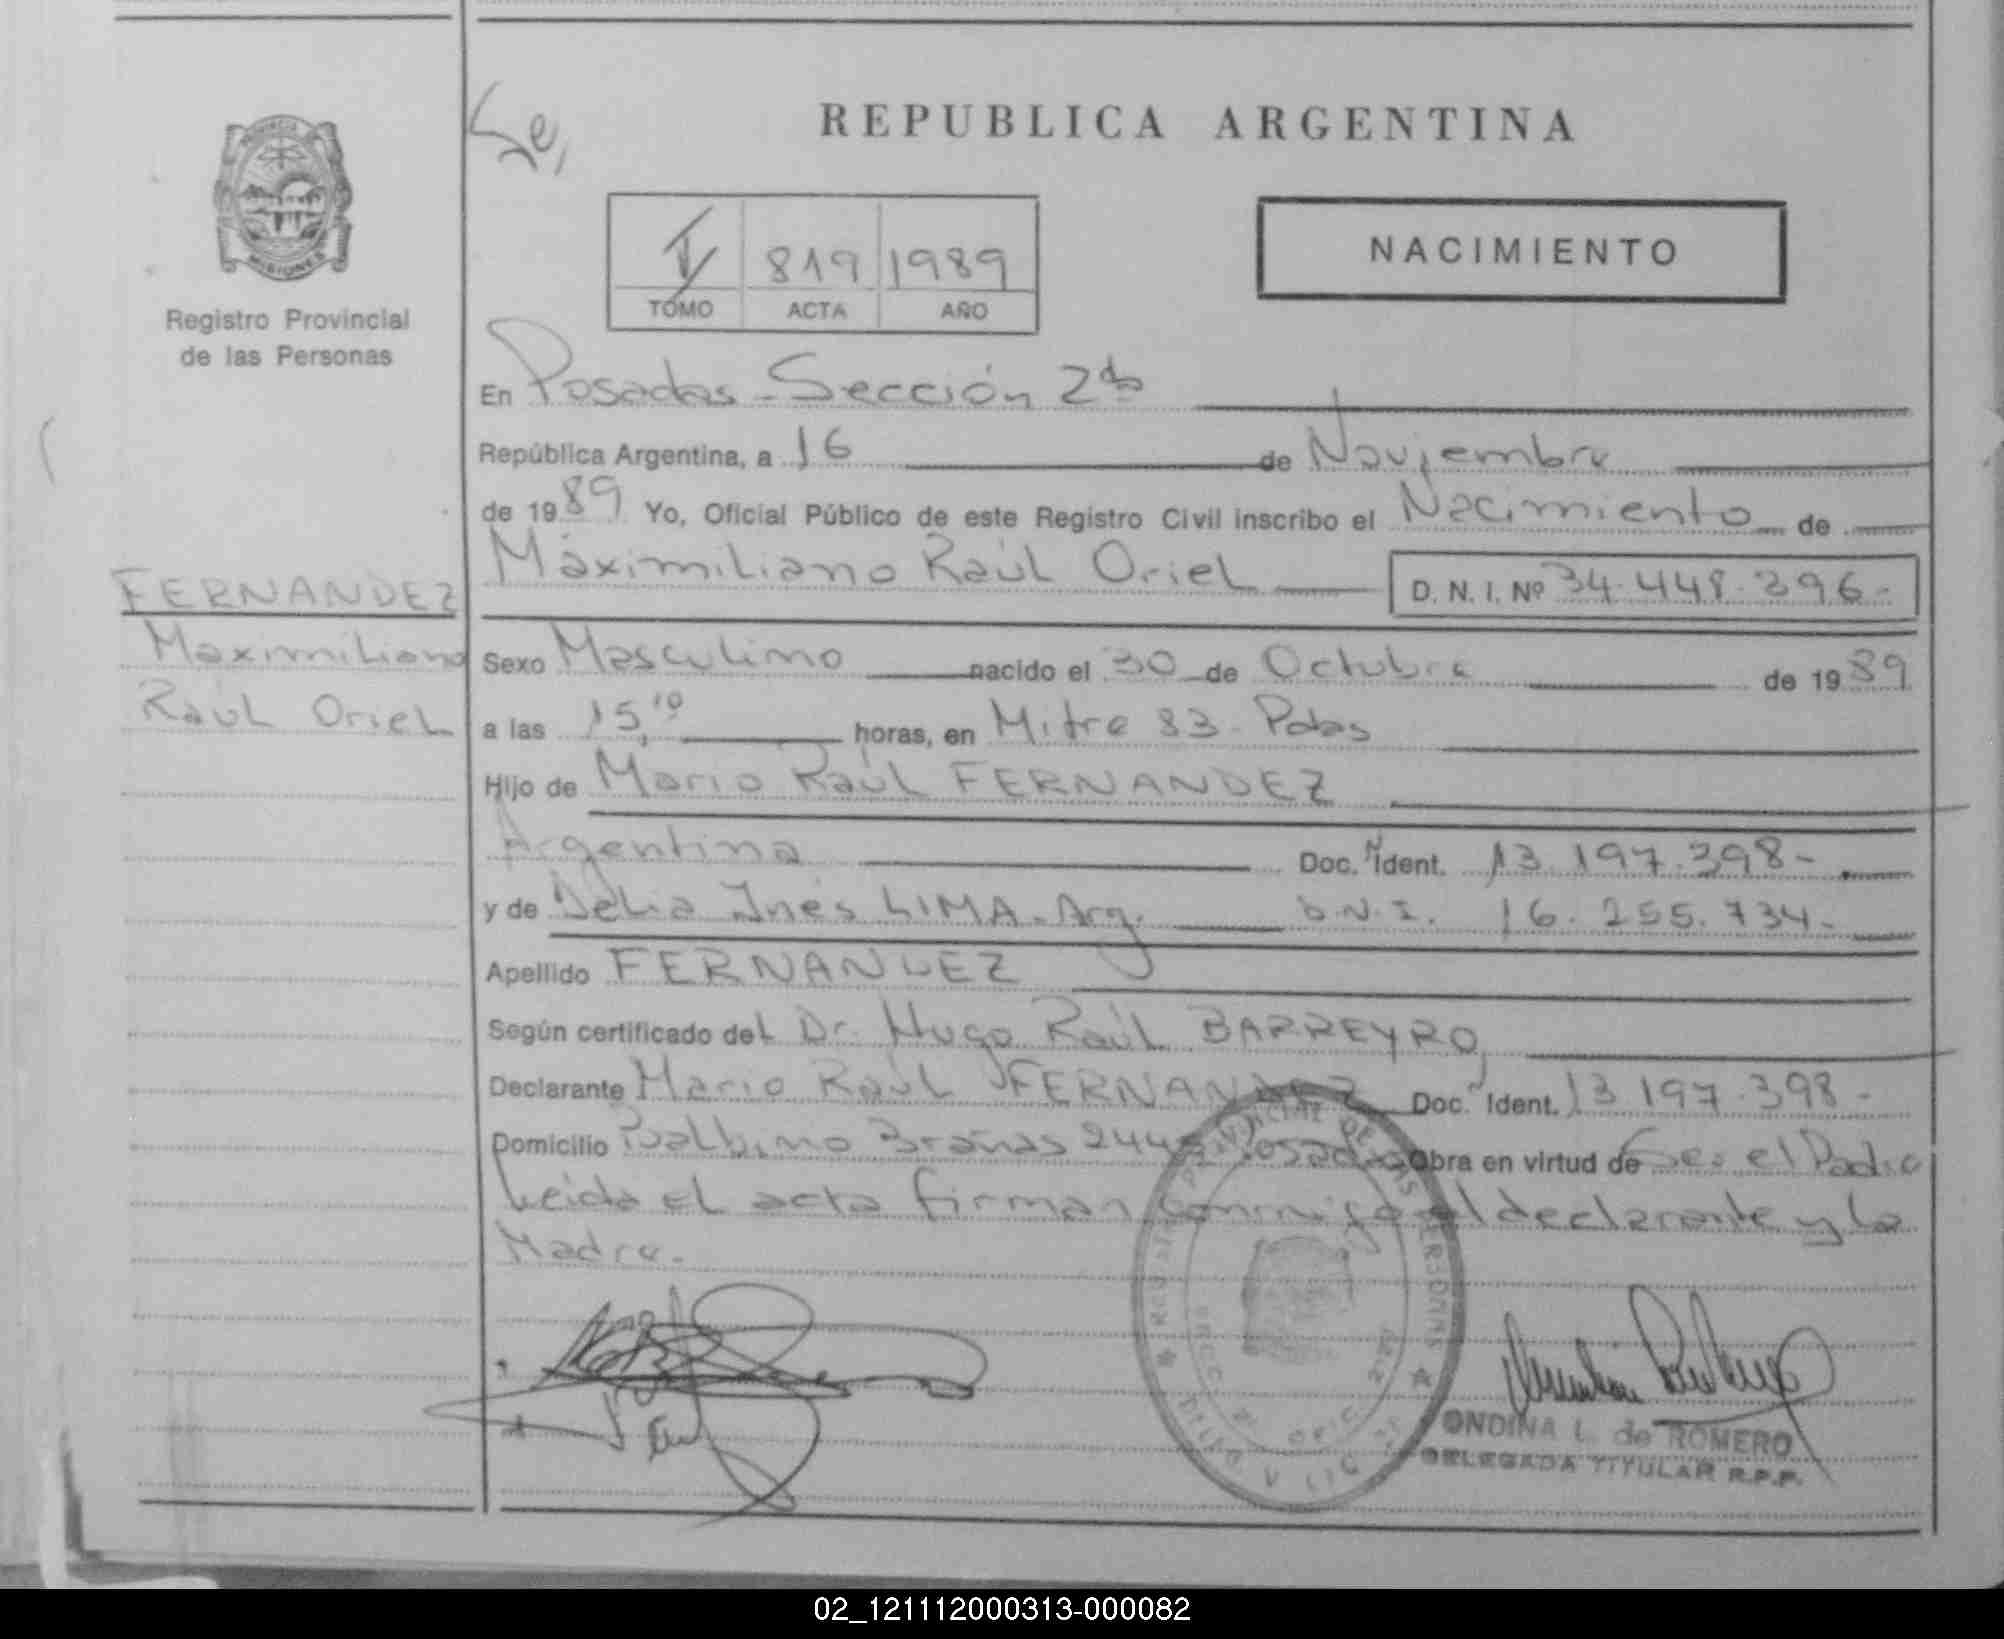 REPUBLICA ARGENTINA
PROVINCIA
MISIONES
Registro Provincial
de las Personas
819 1989
TOMO ACTA AÑO
NACIMIENTO
En Posadas - Sección 2da
República Argentina, a 16 de Noviembre
de 1989 Yo, Oficial Público de este Registro Civil inscribo el Nacimiento de
Máximiliano Raúl Oriel D. N. I. Nº 34.448.396-
FERNANDEZ
Maximiliano
Raúl Oriel
Sexo Masculino nacido el 30 de Octubre de 1989
a las 15,10 horas, en Mitre 83 - Pdas
Hijo de Mario Raúl FERNANDEZ
Argentina Doc. Ident. 13.197.398-
y de Delia Inés LIMA - Arg. D.N.I. 16.255.734-
Apellido FERNANDEZ
Según certificado del Dr. Hugo Raúl BARREYRO,
Declarante Mario Raúl FERNANDEZ Doc. Ident. 13 197.398-
Domicilio Balbino Brañas Posadas Obra en virtud de Ser el Padre
Leida el acta firman conmigo el declarante y la
Madre.
ONDINA L. de ROMERO
DELEGADA TITULAR R.P.P.
02_121112000313-000082